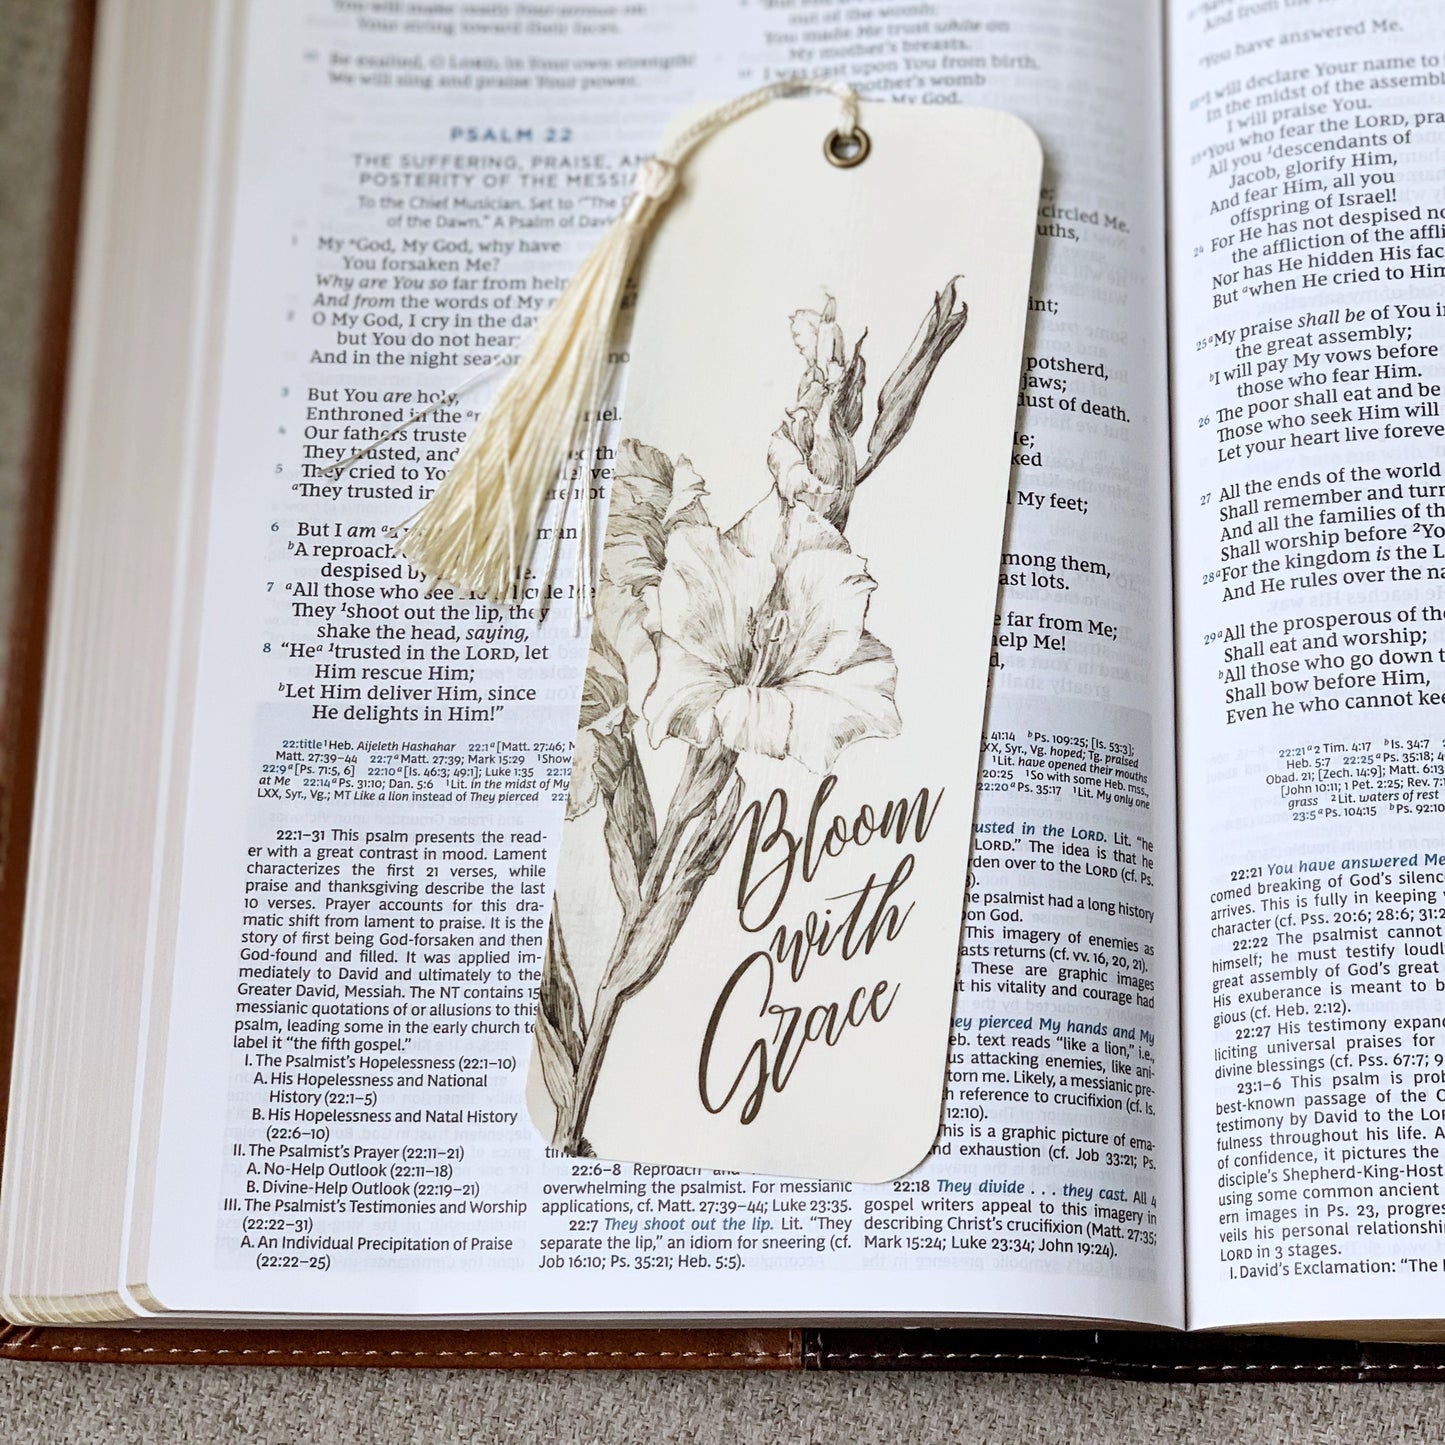 Your string toward their faces.
Be exalted, O LORD, in Your own strength!
We will sing and praise Your power.
PSALM 22
THE SUFFERING, PRAISE, AN
POSTERITY OF THE MESSIA
To the Chief Musician. Set to "The D
of the Dawn." A Psalm of Davi
1 My aGod, My God, why have
You forsaken Me?
Why are You so far from help
And from the words of My
2 O My God, I cry in the day
but You do not hear;
And in the night season
3 But You are holy,
Enthroned in the
4 Our fathers truste
They trusted, and
5 They cried to Yo
aThey trusted in
6 But I am
bA reproach
despised by
7 aAll those who see Me
They 1shoot out the lip, they
shake the head, saying,
8 "Hea 1trusted in the LORD, let
Him rescue Him;
bLet Him deliver Him, since
He delights in Him!"
22:title 1Heb. Aijeleth Hashahar 22:1 a[Matt. 27:46;
Matt. 27:39–44 22:7 aMatt. 27:39; Mark 15:29 1Show
22:9 a[Ps. 71:5, 6] 22:10 a[Is. 46:3; 49:1]; Luke 1:35 22:12
at Me 22:14 aPs. 31:10; Dan. 5:6 1Lit. in the midst of My
LXX, Syr., Vg.; MT Like a lion instead of They pierced 22:
22:1–31 This psalm presents the read-
er with a great contrast in mood. Lament
characterizes the first 21 verses, while
praise and thanksgiving describe the last
10 verses. Prayer accounts for this dra-
matic shift from lament to praise. It is the
story of first being God-forsaken and then
God-found and filled. It was applied im-
mediately to David and ultimately to the
Greater David, Messiah. The NT contains 15
messianic quotations of or allusions to this
psalm, leading some in the early church to
label it "the fifth gospel."
I. The Psalmist's Hopelessness (22:1–10)
A. His Hopelessness and National
History (22:1–5)
B. His Hopelessness and Natal History
(22:6–10)
II. The Psalmist's Prayer (22:11–21)
A. No-Help Outlook (22:11–18)
B. Divine-Help Outlook (22:19–21)
III. The Psalmist's Testimonies and Worship
(22:22–31)
A. An Individual Precipitation of Praise
(22:22–25)
Bloom
with
Grace
22:6–8 Reproach
overwhelming the psalmist. For messianic
applications, cf. Matt. 27:39–44; Luke 23:35.
22:7 They shoot out the lip. Lit. "They
separate the lip," an idiom for sneering (cf.
Job 16:10; Ps. 35:21; Heb. 5:5).
out of the womb;
You made Me trust while on
My mother's breasts.
I was cast upon You from birth.
mother's womb
My God.
circled Me.
potsherd,
jaws;
dust of death.
My feet;
mong them,
ast lots.
far from Me;
help Me!
41:14 bPs. 109:25; [Is. 53:3];
XX, Syr., Vg. hoped; Tg. praised
1Lit. have opened their mouths
20:25 1So with some Heb. mss.,
22:20 aPs. 35:17 1Lit. My only one
usted in the LORD. Lit. "he
LORD." The idea is that he
den over to the LORD (cf. Ps.
psalmist had a long history
on God.
This imagery of enemies as
asts returns (cf. vv. 16, 20, 21).
These are graphic images
t his vitality and courage had
ey pierced My hands and My
eb. text reads "like a lion," i.e.,
us attacking enemies, like ani-
torn me. Likely, a messianic pre-
h reference to crucifixion (cf. Is.
12:10).
his is a graphic picture of ema-
nd exhaustion (cf. Job 33:21; Ps.
22:18 They divide . . . they cast. All 4
gospel writers appeal to this imagery in
describing Christ's crucifixion (Matt. 27:35;
Mark 15:24; Luke 23:34; John 19:24).
And from the
You have answered Me.
I will declare Your name to
In the midst of the assembl
I will praise You.
You who fear the LORD, pra
All you 1descendants of
Jacob, glorify Him,
And fear Him, all you
offspring of Israel!
24 For He has not despised no
the affliction of the affli
Nor has He hidden His fac
But awhen He cried to Him
25 aMy praise shall be of You i
the great assembly;
bI will pay My vows before
those who fear Him.
26 The poor shall eat and be
Those who seek Him will
Let your heart live foreve
27 All the ends of the world
Shall remember and turn
And all the families of th
Shall worship before 2Yo
28 aFor the kingdom is the L
And He rules over the na
29 aAll the prosperous of the
Shall eat and worship;
bAll those who go down t
Shall bow before Him,
Even he who cannot kee
22:21 a2 Tim. 4:17 bIs. 34:7
Heb. 5:7 22:25 aPs. 35:18; 4
Obad. 21; [Zech. 14:9]; Matt. 6:13
[John 10:11; 1 Pet. 2:25; Rev. 7:1
grass 2Lit. waters of rest
23:5 aPs. 104:15 bPs. 92:10
22:21 You have answered Me
comed breaking of God's silenc
arrives. This is fully in keeping
character (cf. Pss. 20:6; 28:6; 31:2
22:22 The psalmist cannot
himself; he must testify loudl
great assembly of God's great
His exuberance is meant to b
gious (cf. Heb. 2:12).
22:27 His testimony expand
liciting universal praises for
divine blessings (cf. Pss. 67:7; 9
23:1–6 This psalm is prob
best-known passage of the O
testimony by David to the Lor
fulness throughout his life. A
of confidence, it pictures the
disciple's Shepherd-King-Host
using some common ancient
ern images in Ps. 23, progres
veils his personal relationshi
LORD in 3 stages.
I. David's Exclamation: "The